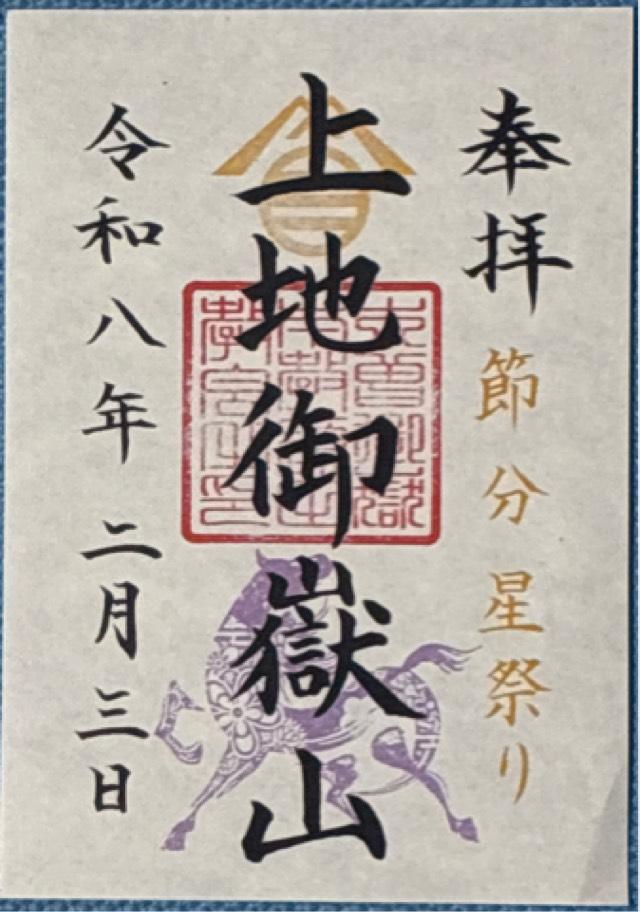 奉拝 節分星祭り
上地御嶽山
令和八年 二月三日